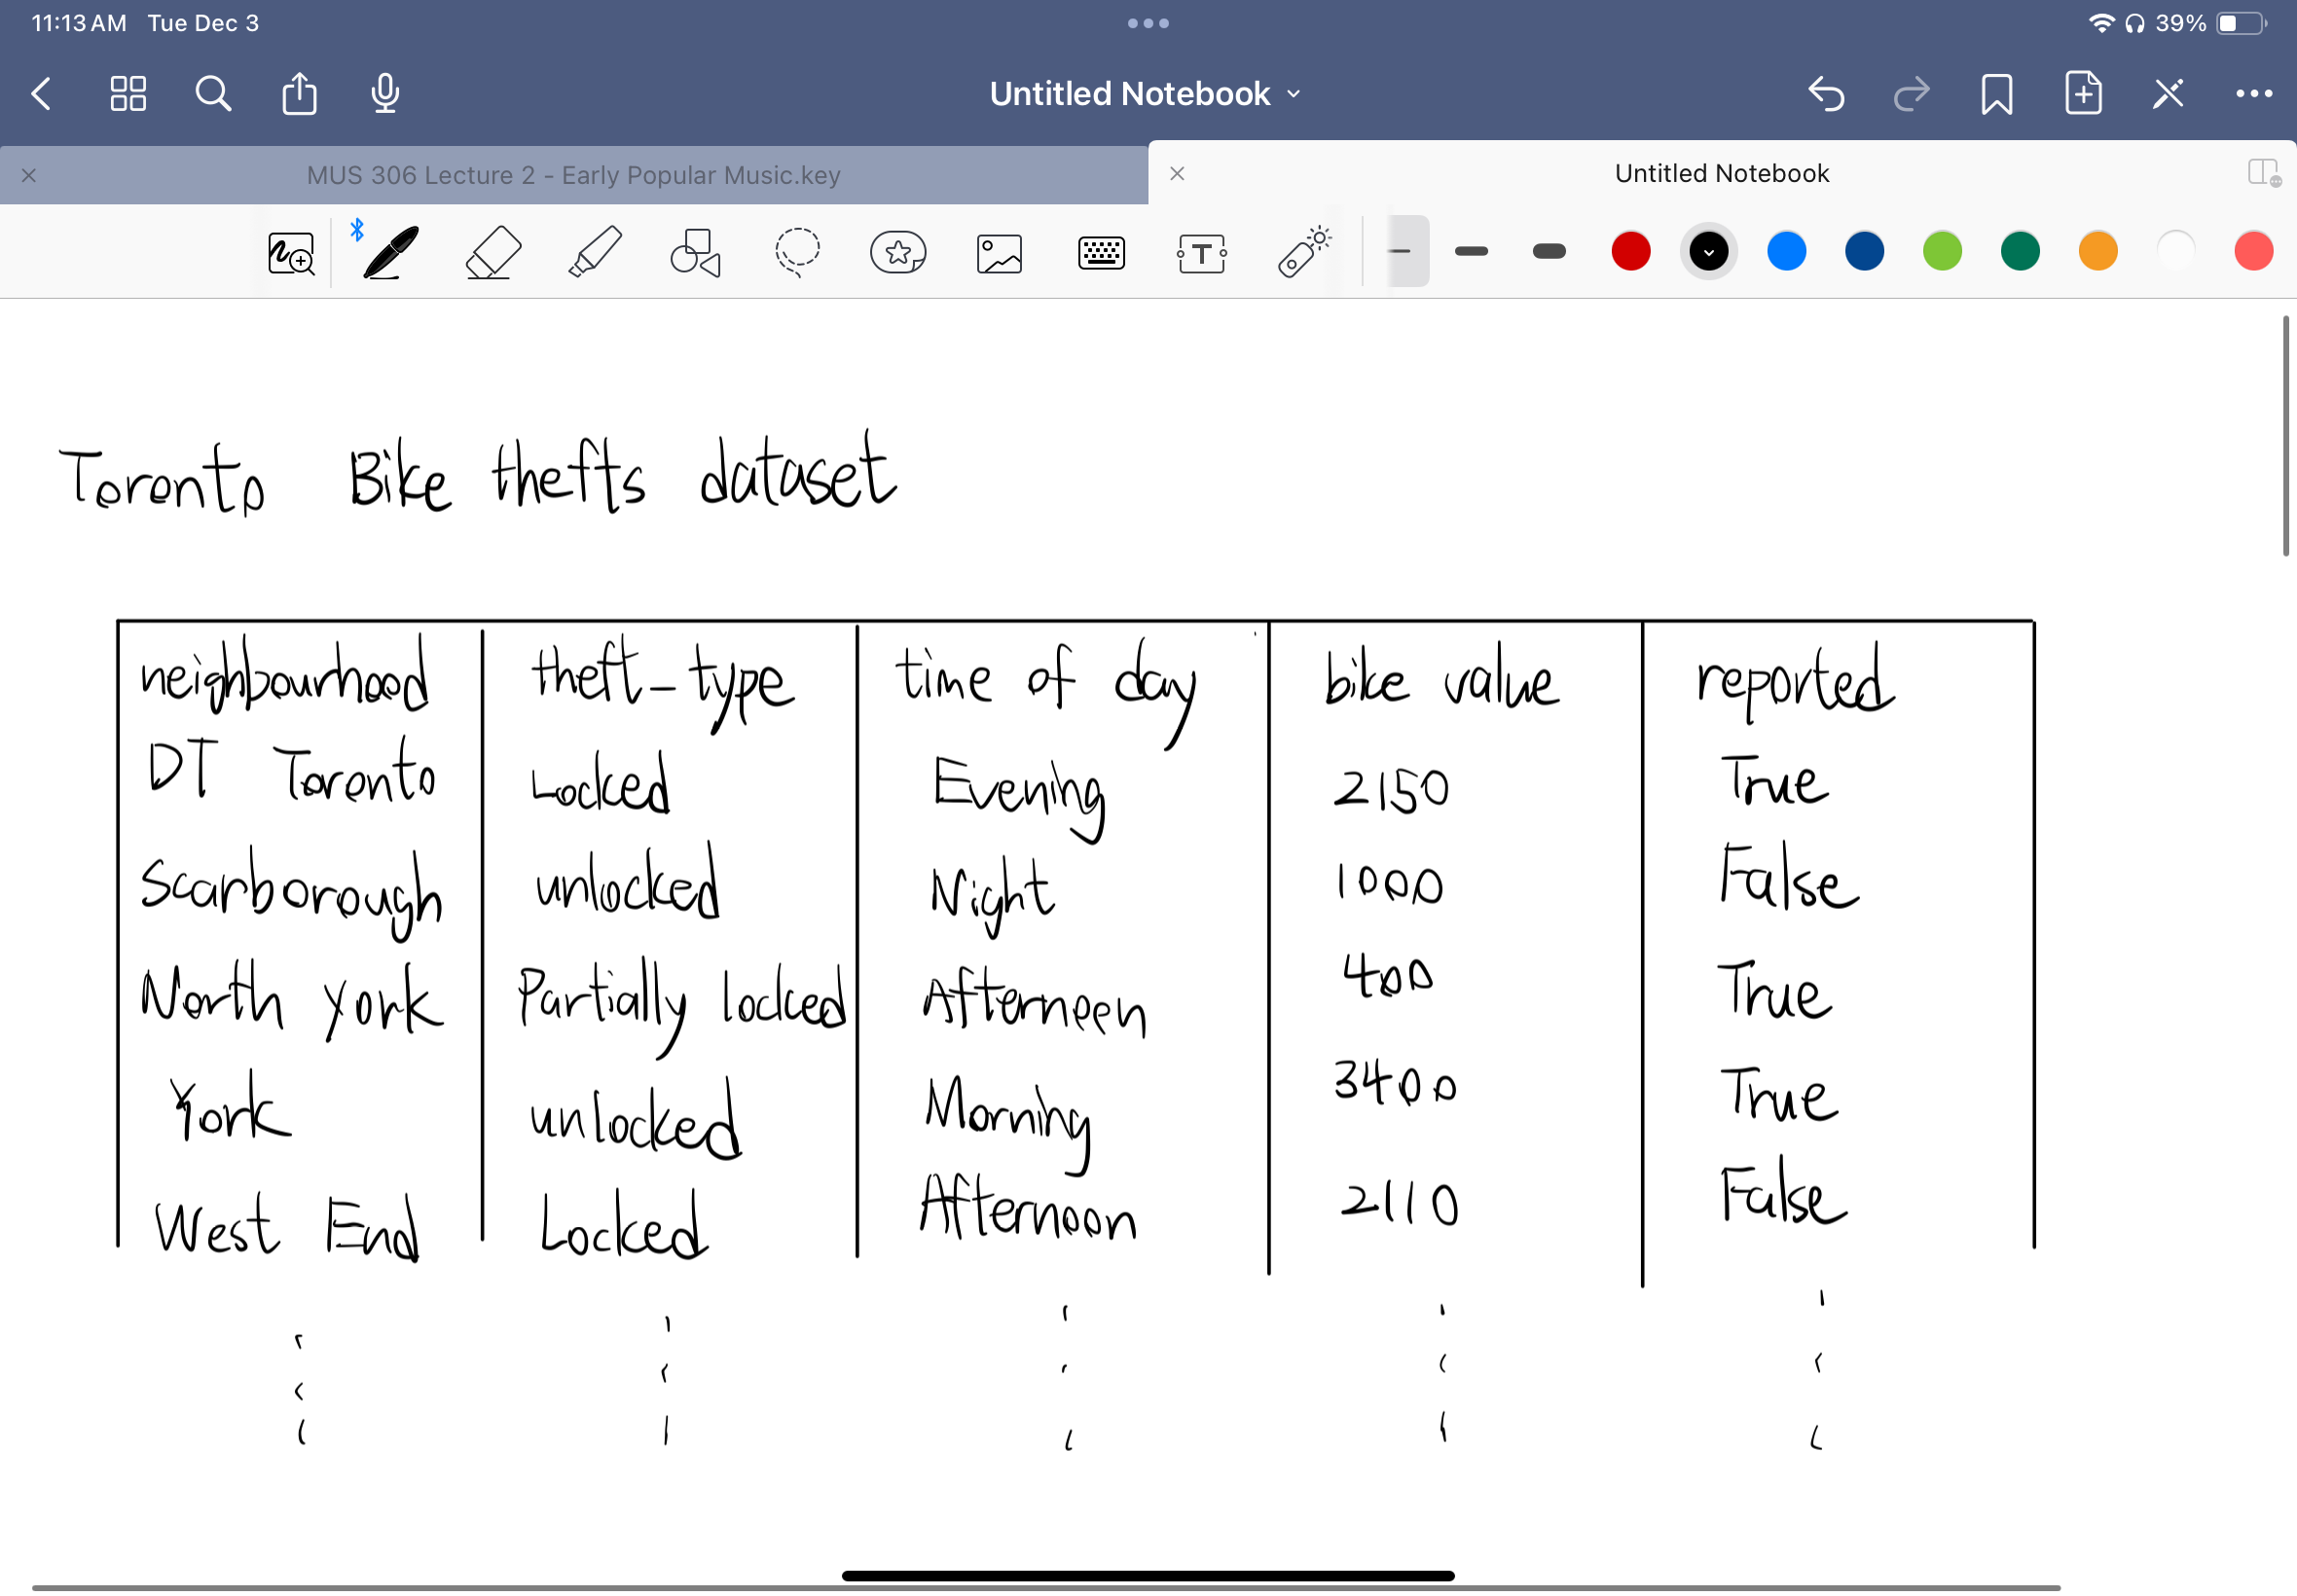 11:13 AM Tue Dec 3
39%
Untitled Notebook
MUS 306 Lecture 2 - Early Popular Music.key
Untitled Notebook
T
Toronto Bike thefts dataset
neighbourhood theft_type time of day bike value reported
DT Toronto Locked Evening 2150 True
Scarborough unlocked Night 1000 False
North york Partially Locked Afternoon 400 True
York unlocked Morning 3400 True
West End Locked Afternoon 2110 False